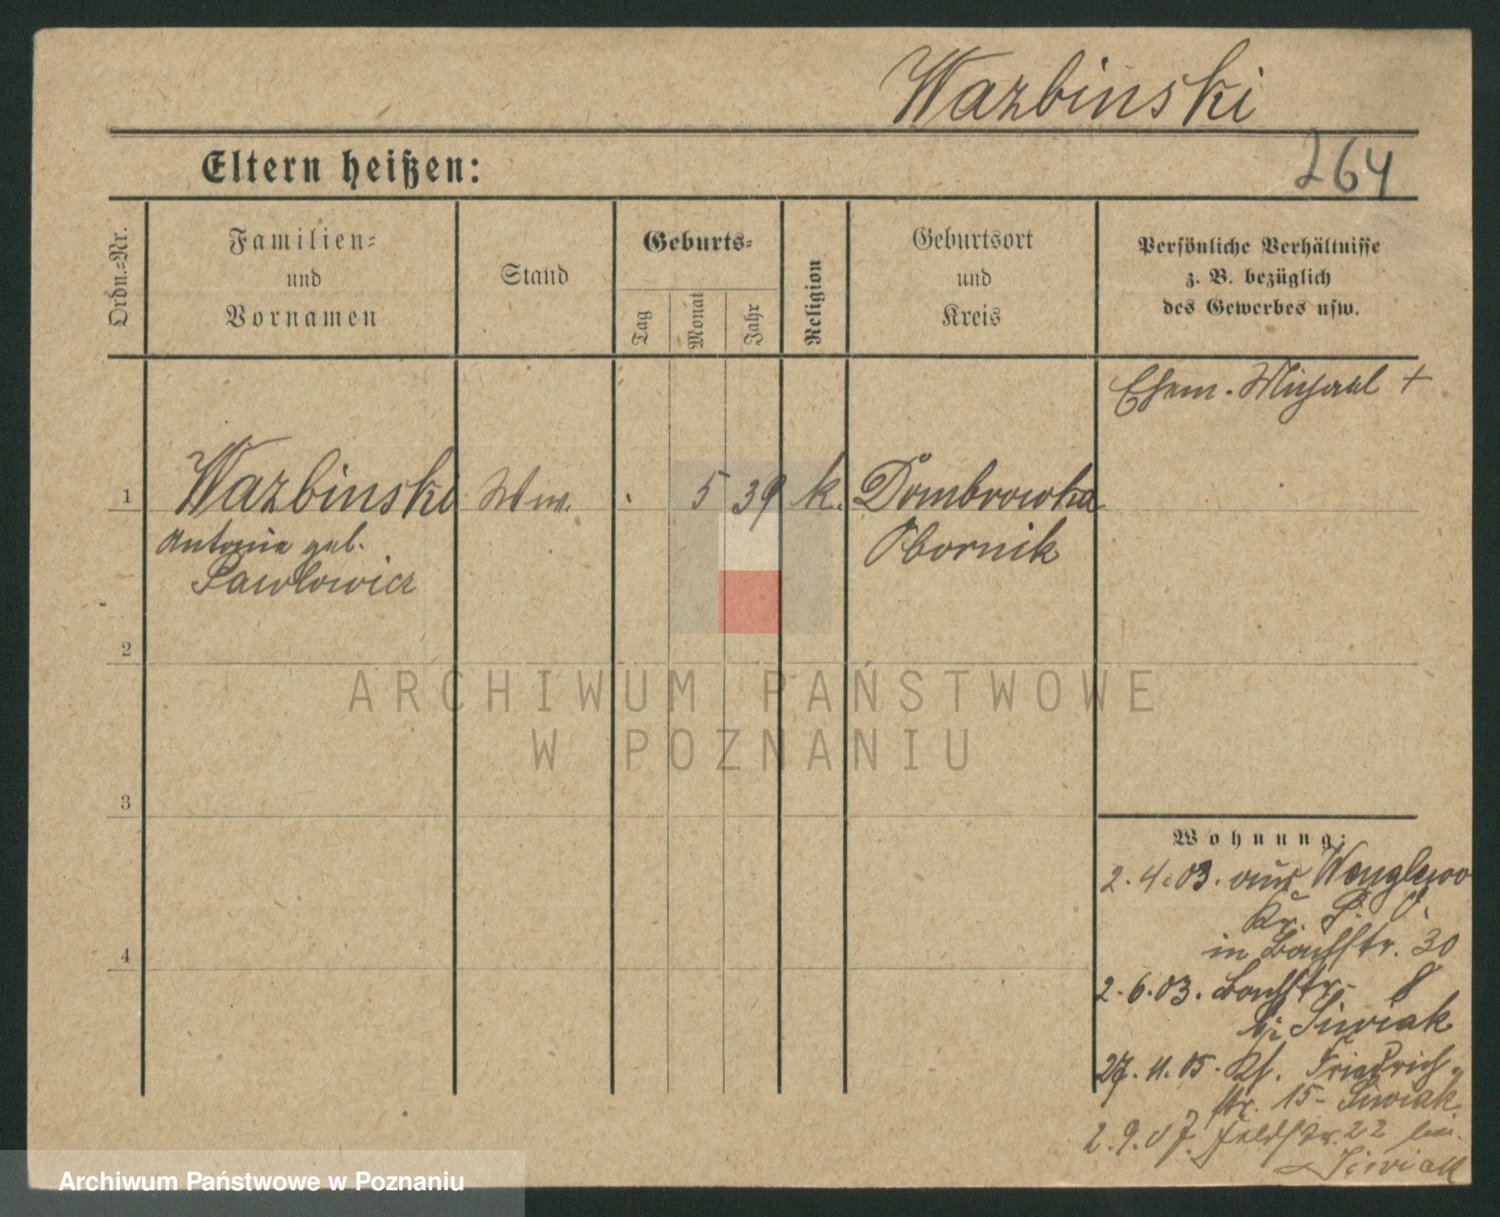 Wazbinski
264
Eltern heißen:
Ordn.=Nr.
Familien=
und
Vornamen
Stand
Geburts=
Tag
Monat
Jahr
Religion
Geburtsort
und
Kreis
Persönliche Verhältnisse
z. B. bezüglich
des Gewerbes usw.
Ehem. Michael +
1
Wazbinski
Antonie geb.
Pawlowicz
Ww.
5
39
k.
Dombrowka
Obornik
2
3
4
ARCHIWUM PAŃSTWOWE
W POZNANIU
Wohnung:
2.4.03. aus
Kr. P. O.
in Bachstr. 30
2.6.03. Bachstr. 8
bei Siwiak
27.11.05. Kf. Friedrich
str. 15 - Siwiak
2.9.07. Feldstr. 22 bei
Siwiak
Archiwum Państwowe w Poznaniu